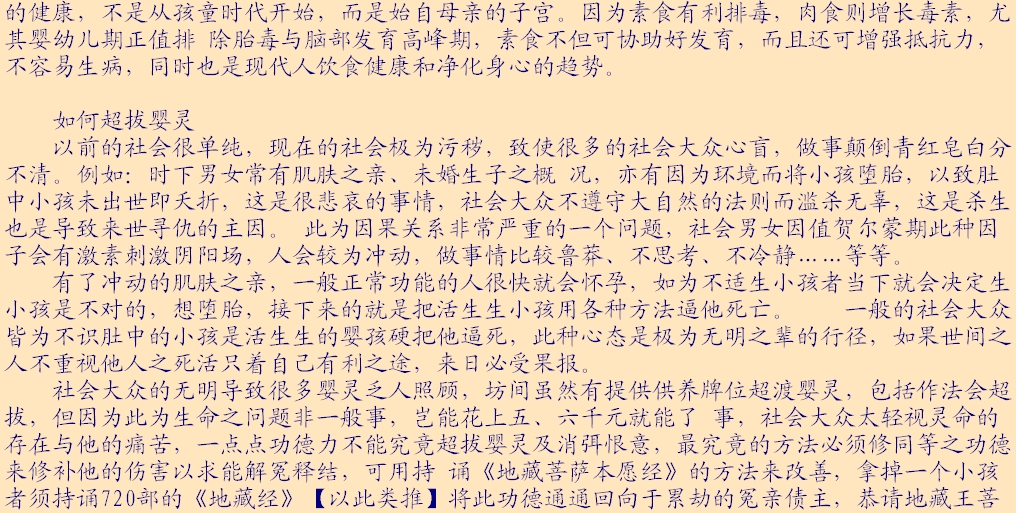 的健康，不是从孩童时代开始，而是始自母亲的子宫。因为素食有利排毒，肉食则增长毒素，尤
其婴幼儿期正值排 除胎毒与脑部发育高峰期，素食不但可协助好发育，而且还可增强抵抗力，
不容易生病，同时也是现代人饮食健康和净化身心的趋势。
如何超拔婴灵
以前的社会很单纯，现在的社会极为污秽，致使很多的社会大众心盲，做事颠倒青红皂白分
不清。例如：时下男女常有肌肤之亲、未婚生子之概 况，亦有因为环境而将小孩堕胎，以致肚
中小孩未出世即夭折，这是很悲哀的事情，社会大众不遵守大自然的法则而滥杀无辜，这是杀生
也是导致来世寻仇的主因。 此为因果关系非常严重的一个问题，社会男女因值贺尔蒙期此种因
子会有激素刺激阴阳场，人会较为冲动，做事情比较鲁莽、不思考、不冷静……等等。
有了冲动的肌肤之亲，一般正常功能的人很快就会怀孕，如为不适生小孩者当下就会决定生
小孩是不对的，想堕胎，接下来的就是把活生生小孩用各种方法逼他死亡。 一般的社会大众
皆为不识肚中的小孩是活生生的婴孩硬把他逼死，此种心态是极为无明之辈的行径，如果世间之
人不重视他人之死活只着自己有利之途，来日必受果报。
社会大众的无明导致很多婴灵乏人照顾，坊间虽然有提供供养牌位超渡婴灵，包括作法会超
拔，但因为此为生命之问题非一般事，岂能花上五、六千元就能了 事，社会大众太轻视灵命的
存在与他的痛苦，一点点功德力不能究竟超拔婴灵及消弭恨意，最究竟的方法必须修同等之功德
来修补他的伤害以求能解冤释结，可用持 诵《地藏菩萨本愿经》的方法来改善，拿掉一个小孩
者须持诵720部的《地藏经》【以此类推】将此功德通通回向于累劫的冤亲债主，恭请地藏王菩